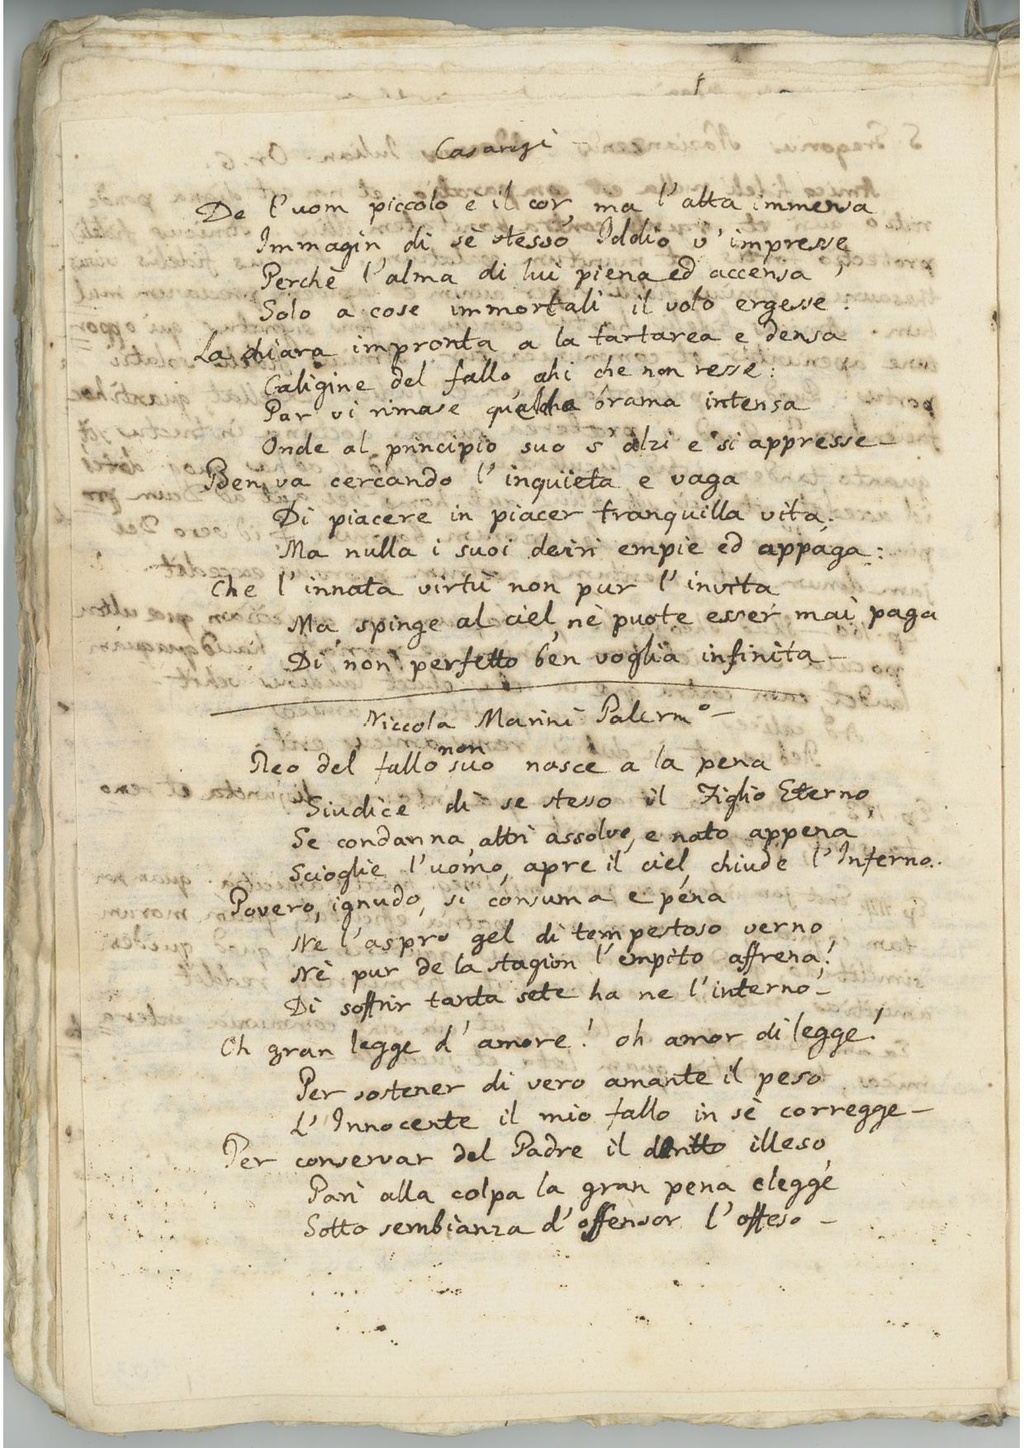 Casaregi
De l'uom piccolo e il cor, ma l'alta immensa
Immagin di sè stesso Iddio v'impresse,
Perchè l'alma di lui piena ed accensa
Solo a cose immortali il volo ergesse:
La chiara impronta a la tartarea e densa
Caligine del fallo ahi che non resse:
Par vi rimase qualche brama intensa
Onde al principio suo s'alzi e si appresse—
Ben va cercando l'inquieta e vaga
Di piacere in piacer tranquilla vita.
Ma nulla i suoi desiri empie ed appaga:
Che l'innata virtù non pur l'invita
Ma spinge al ciel, nè puote esser mai paga
Di non perfetto ben voglia infinita—
Niccola Marini Palerm.º—
Reo del fallo non suo nasce a la pena
Giudice di se stesso il Figlio Eterno,
Se condanna, altri assolve, e nato appena
Scioglie l'uomo, apre il ciel, chiude l'Inferno.
Povero, ignudo, si consuma e pena
Ne l'aspro gel di tempestoso verno,
Nè pur de la stagion l'empito affrena!
Di soffrir tanta sete ha ne l'interno—
Oh gran legge d'amore! oh amor di legge!
Per sostener di vero amante il peso
L'Innocente il mio fallo in sè corregge—
Per conservar del Padre il dritto illeso
Pari alla colpa la gran pena elegge
Sotto sembianza d'offensor l'offeso—